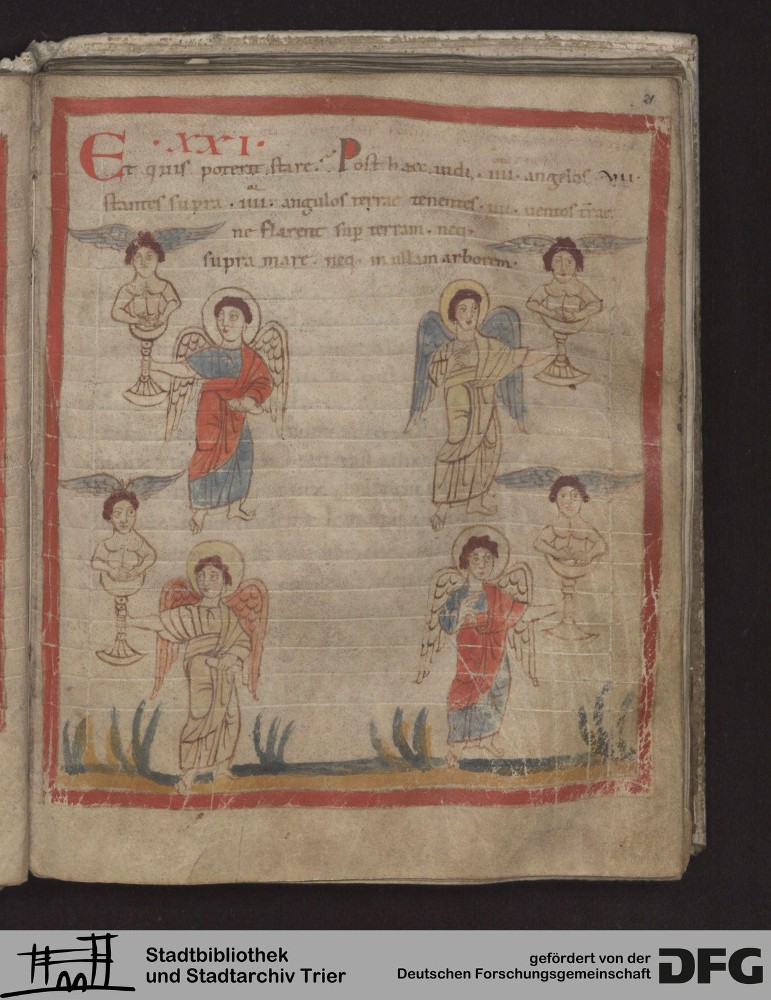 21
·XXI·
Et quis poterit stare. Post haec uidi· IIII· angelos VII·
stantes supra· IIII· angulos terrae tenentes· IIII· uentos trae·
ne flarent sup terram· neq·
supra mare· neq· in ullam arborem·
Stadtbibliothek
und Stadtarchiv Trier
gefördert von der
Deutschen Forschungsgemeinschaft
DFG